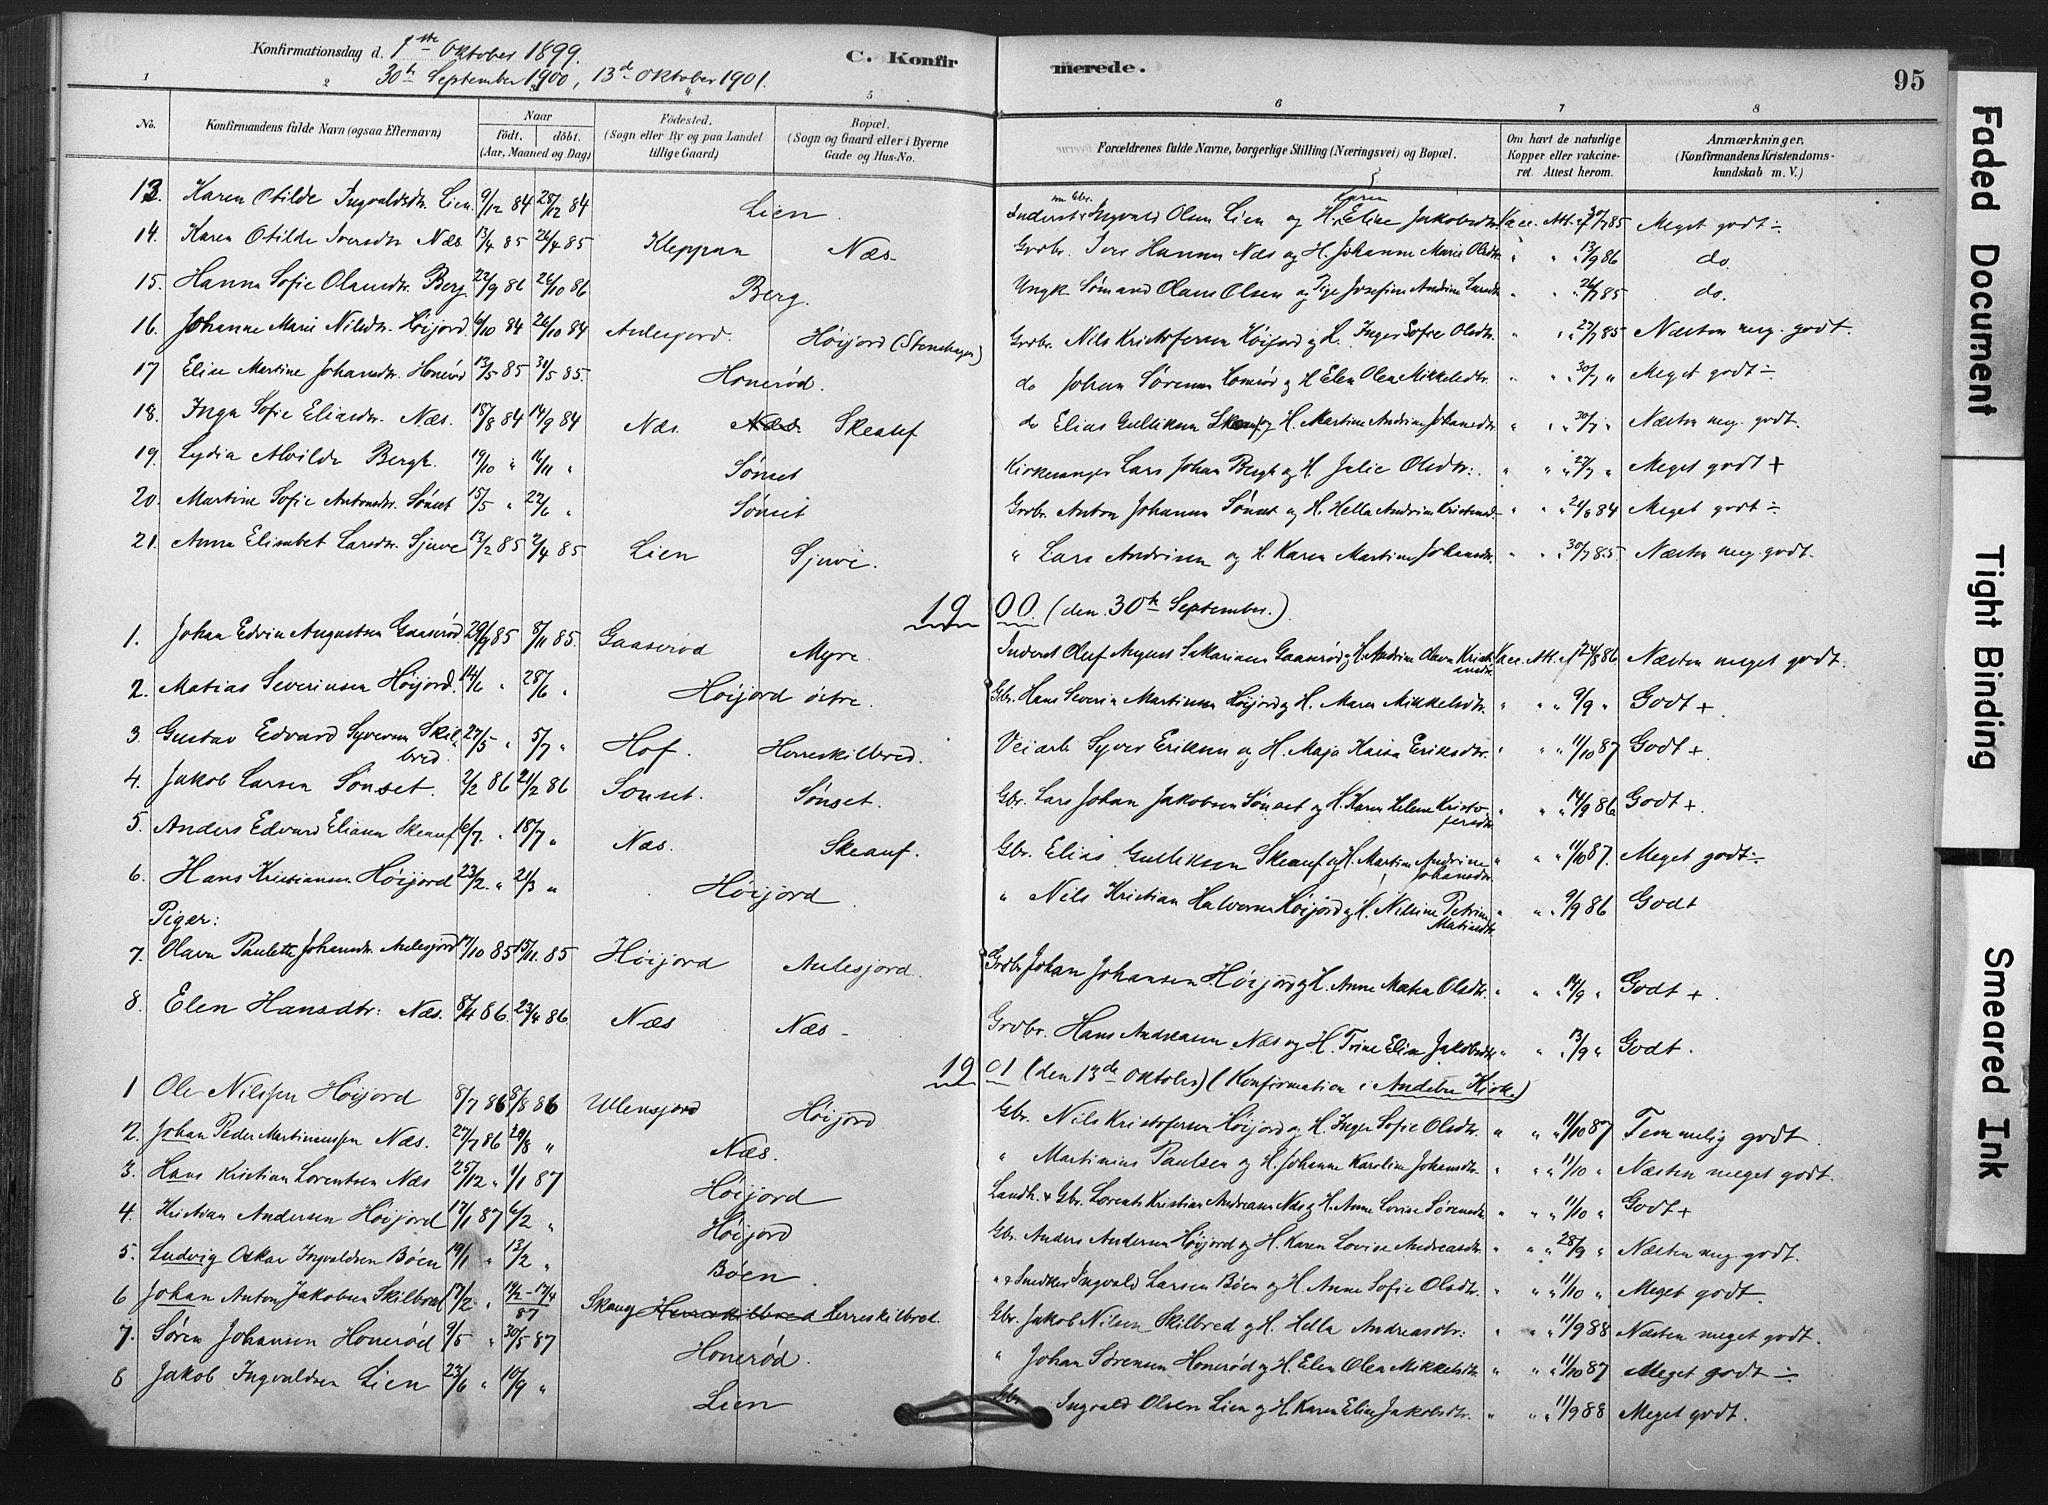 Konfirmationsdag d. 1ste Oktober 1899.
30te September 1900, 13de Oktober 1901.
C. Konfirmerede.
95
1 2 3 4 5 6 7 8
No. Konfirmandens fulde Navn (ogsaa Efternavn) Naar födt. döbt. (Aar, Maaned og Dag) Födested. (Sogn eller By og paa Landet tillige Gaard) Bopæl. (Sogn og Gaard eller i Byerne Gade og Hus-No. Forældrenes fulde Navne, borgerlige Stilling (Næringsvei) og Bopæl. Om havt de naturlige Kopper eller vakcineret. Attest herom. Anmærkninger. (Konfirmandens Kristendomskundskab m. V.)
13. Karen Otilde Ingvaldsdtr. Lien. 9/12 84 28/12 84 Lien. Inderst Ingvald Olsen Lien og H. Karen Eline Jakobsdtr. Vacc. Att. f 30/7 85 Meget godt ÷
14. Karen Otilde Iversdtr Næs. 13/4 85 26/4 85 Kleppan Næs. Grdbr. Iver Hansen Næs og H. Johanne Marie Olsdtr " " 13/9 86 do.
15. Hanna Sofie Olausdtr. Berg. 23/9 86 26/10 86 Berg. Ungk Sømand Olaus Olsen og Pige Josefine Andrine Larsdtr " " 26/7 85 do.
16. Johanne Marie Nilsdtr. Höijord. 6/10 84 26/10 84 Aulesjord. Höijord (Stenhagen) Grdbr. Nils Kristofersen Höijord og H. Inger Sofie Olsdtr. " " 23/7 85 Næsten meg. godt.
17 Elise Martine Johansdtr. Honerød 13/5 85 31/5 85. Honerød. do Johan Sørensen Honerød og H Elen Olea Mikkelsdtr. " " 30/7 " Meget godt ÷
18. Inga Sofie Eliasdtr. Næs. 18/8 84 14/9 84 Næs. Næs. Skeauf do Elias Gulliksen Skeauf og H. Martine Andrine Johansdtr " " 30/7 " Næsten meg. godt.
19. Lydia Alvilde Bergh. 19/10 " 16/11 " Sønset Kirkesanger Lars Johan Bergh og H. Julie Olsdtr: " " 27/7 " Meget godt +
20. Martine Sofie Antonsdtr. Sønset 15/5 " 22/6 " Sønset Grdbr. Anton Johansen Sønset og H. Hella Andrine Kristensd " " 21/8 84 Meget godt ÷
21. Anna Elisabet Larsdtr. Sjuve 13/2 85 2/4 85 Lien Sjuve. " Lars Andersen og H. Karen Martine Johansdtr. " " 30/7 85. Næsten meg. godt.
1900 (den 30te September.)
1. Johan Edvin Augustsen Gaaserød 29/9 85 8/11 85. Gaaserød Myre. Inderst Oluf August Sakariasen Gaaserød og H. Andrine Olava Kristiansdtr Vacc. Att. f 24/8 86 Næsten meget godt.
2. Matias Severinsen Höijord. 14/6 " 28/6 " Höijord östre. Gbr. Hans Severin Martinsen Höijord og H. Maren Mikkelsdtr. " " 9/9 " Godt +.
3. Gustav Edvard Syversen Skilbred. 27/5 " 5/7 " Hof. Herreskilbred. Veiarb. Syver Eriksen og H. Maja Kaisa Eriksdtr. " " 11/10 87 Godt +.
4. Jakob Larsen Sönset. 2/2 86 21/2 86 Sönset. Sønset. Gbr. Lars Johan Jakobsen Sönset og H. Karen Helene Kristofersdtr " " 14/9 86 Godt +.
5. Anders Edvard Eliassen Skeauf 6/7. " 18/7 " Næs. Skeauf. Gbr. Elias Gulliksen Skeauf og H. Martine Andrine Johansdtr. " " 11/10 87. Meget godt ÷
6. Hans Kristiansen Höijord 23/2. " 21/3 " Höijord. " Nils Kristian Halvorsen Höijord og H. Nilsine Petrine Matiasdtr. " " 9/9 86 Godt
Piger:
7. Olava Paulette Johansdtr. Aulesjord 17/10 85 15/11. 85 Höijord Aulesjord. Grdbr Johan Johansen Höijord og H. Anne Matea Olsdtr. " " 14/9 " Godt +.
8. Elen Hansdtr: Næs. 8/4 86. 23/4 86 Næs Næs- Grdbr. Hans Andreassen Næs og H. Trine Elise Jakobsdtr " " 13/9 " Godt.
1901 (den 13de Oktober) (Konfirmation i Andebu Kirke.)
1 Ole Nilssen Höijord 8/7 86 8/8 86 Ulensjord Höijord Gbr. Nils Kristofersen Höijord og H. Inger Sofie Olsdtr. " " 11/10 87 Temmelig godt.
2. Johan Peder Martiniussen Næs. 27/7 86 29/8 " Næs. " Martinius Paulsen og H. Johanne Karoline Johansdtr. " " 11/10 " Næsten meget godt.
3. Hans Kristian Lorentsen Næs 25/12 " 1/1 87 Höijord Landh. & Gbr. Lorents Kristian Andreasen Næs og H. Anne Lovise Sørensdtr " " 11/10 " Godt +
4. Kristian Andersen Höijord 17/1 87 6/2 " Höijord Gbr. Anders Andersen Höijord og H. Karen Lovise Andreasdtr. " " 28/9 " Næsten meg. godt.
5. Ludvig Oskar Ingvaldsen Böen 19/1 " 13/2 " Böen. " & Snedker Ingvald Larsen Böen og H. Anne Sofie Olsdtr. " " 11/10 " Meget godt.
6 Johan Anton Jakobsen Skilbred 17/2 " 19/2 - 17/4 87 Skaug Herreskilbred Herreskilbred. Gbr. Jakob Nilsen Skilbred og H. Hella Andreasdtr: " " 11/9 88 Næsten meget godt.
7. Sören Johansen Honerød 9/5 " 30/5 87 Honerød. " Johan Sørensen Honerød og H. Elen Olea Mikkelsdtr " " 11/10 87 Meget godt ÷
8 Jakob Ingvaldsen Lien 23/6 " 10/9 " Lien Gbr Ingvald Olsen Lien og H Karen Eline Jakobsdtr. " " 11/9 88 Meget godt.
Faded Document
Tight Binding
Smeared Ink